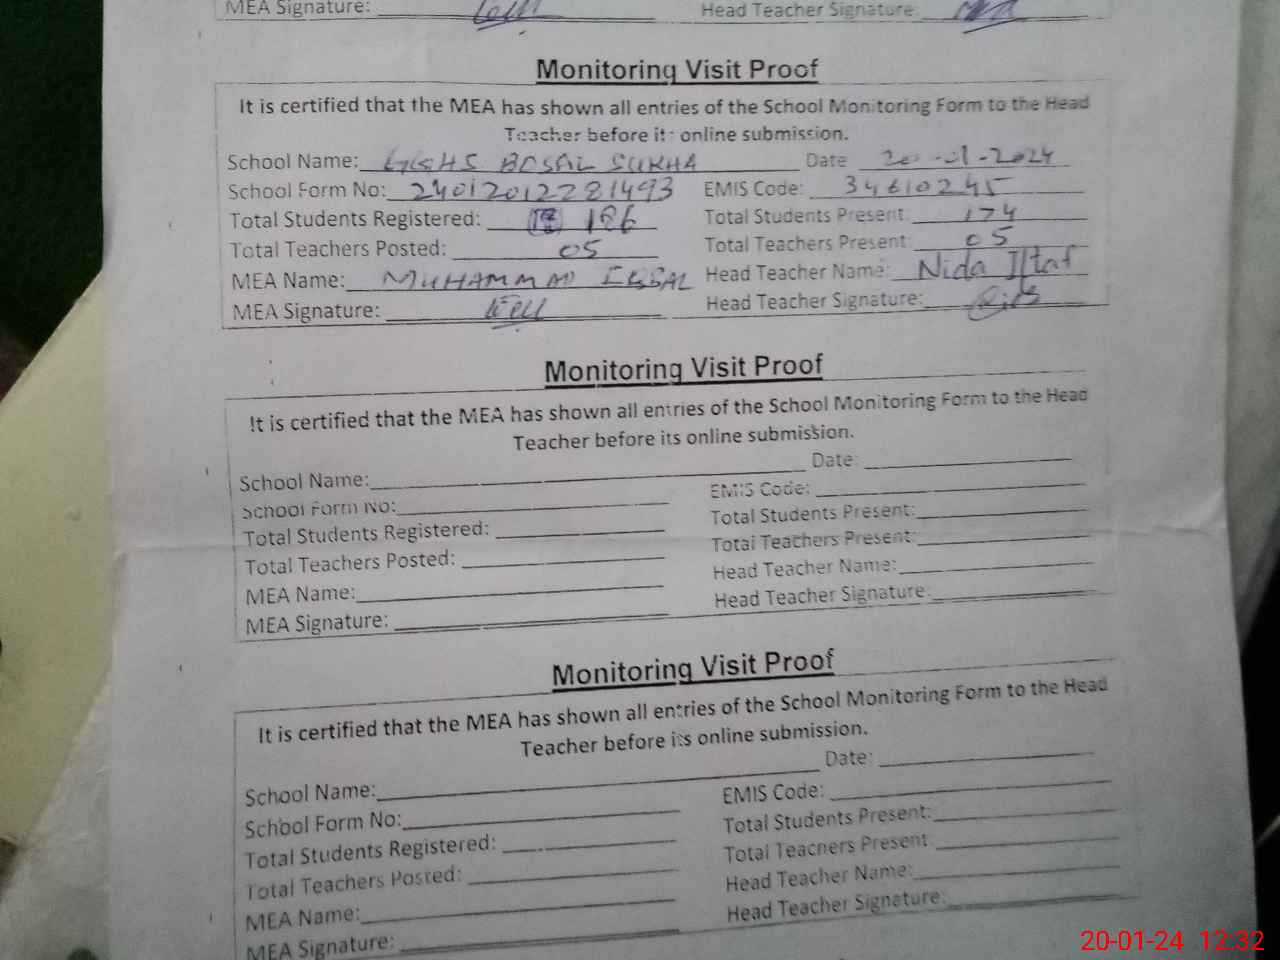 MEA Signature: Head Teacher Signature:
Monitoring Visit Proof
It is certified that the MEA has shown all entries of the School Monitoring Form to the Head
Teacher before its online submission.
School Name: GGHS BOSAL SUKHA Date 20-01-2024
School Form No: 24012012281493 EMIS Code: 34610245
Total Students Registered: 186 Total Students Present: 174
Total Teachers Posted: 05 Total Teachers Present: 05
MEA Name: MUHAMMAD Head Teacher Name: Nida Iltaf
MEA Signature: Head Teacher Signature:
Monitoring Visit Proof
It is certified that the MEA has shown all entries of the School Monitoring Form to the Head
Teacher before its online submission.
School Name: Date:
School Form No: EMIS Code:
Total Students Registered: Total Students Present:
Total Teachers Posted: Total Teachers Present:
MEA Name: Head Teacher Name:
MEA Signature: Head Teacher Signature:
Monitoring Visit Proof
It is certified that the MEA has shown all entries of the School Monitoring Form to the Head
Teacher before its online submission.
School Name: Date:
School Form No: EMIS Code:
Total Students Registered: Total Students Present:
Total Teachers Posted: Total Teachers Present:
MEA Name: Head Teacher Name:
MEA Signature: Head Teacher Signature:
20-01-24 12:32